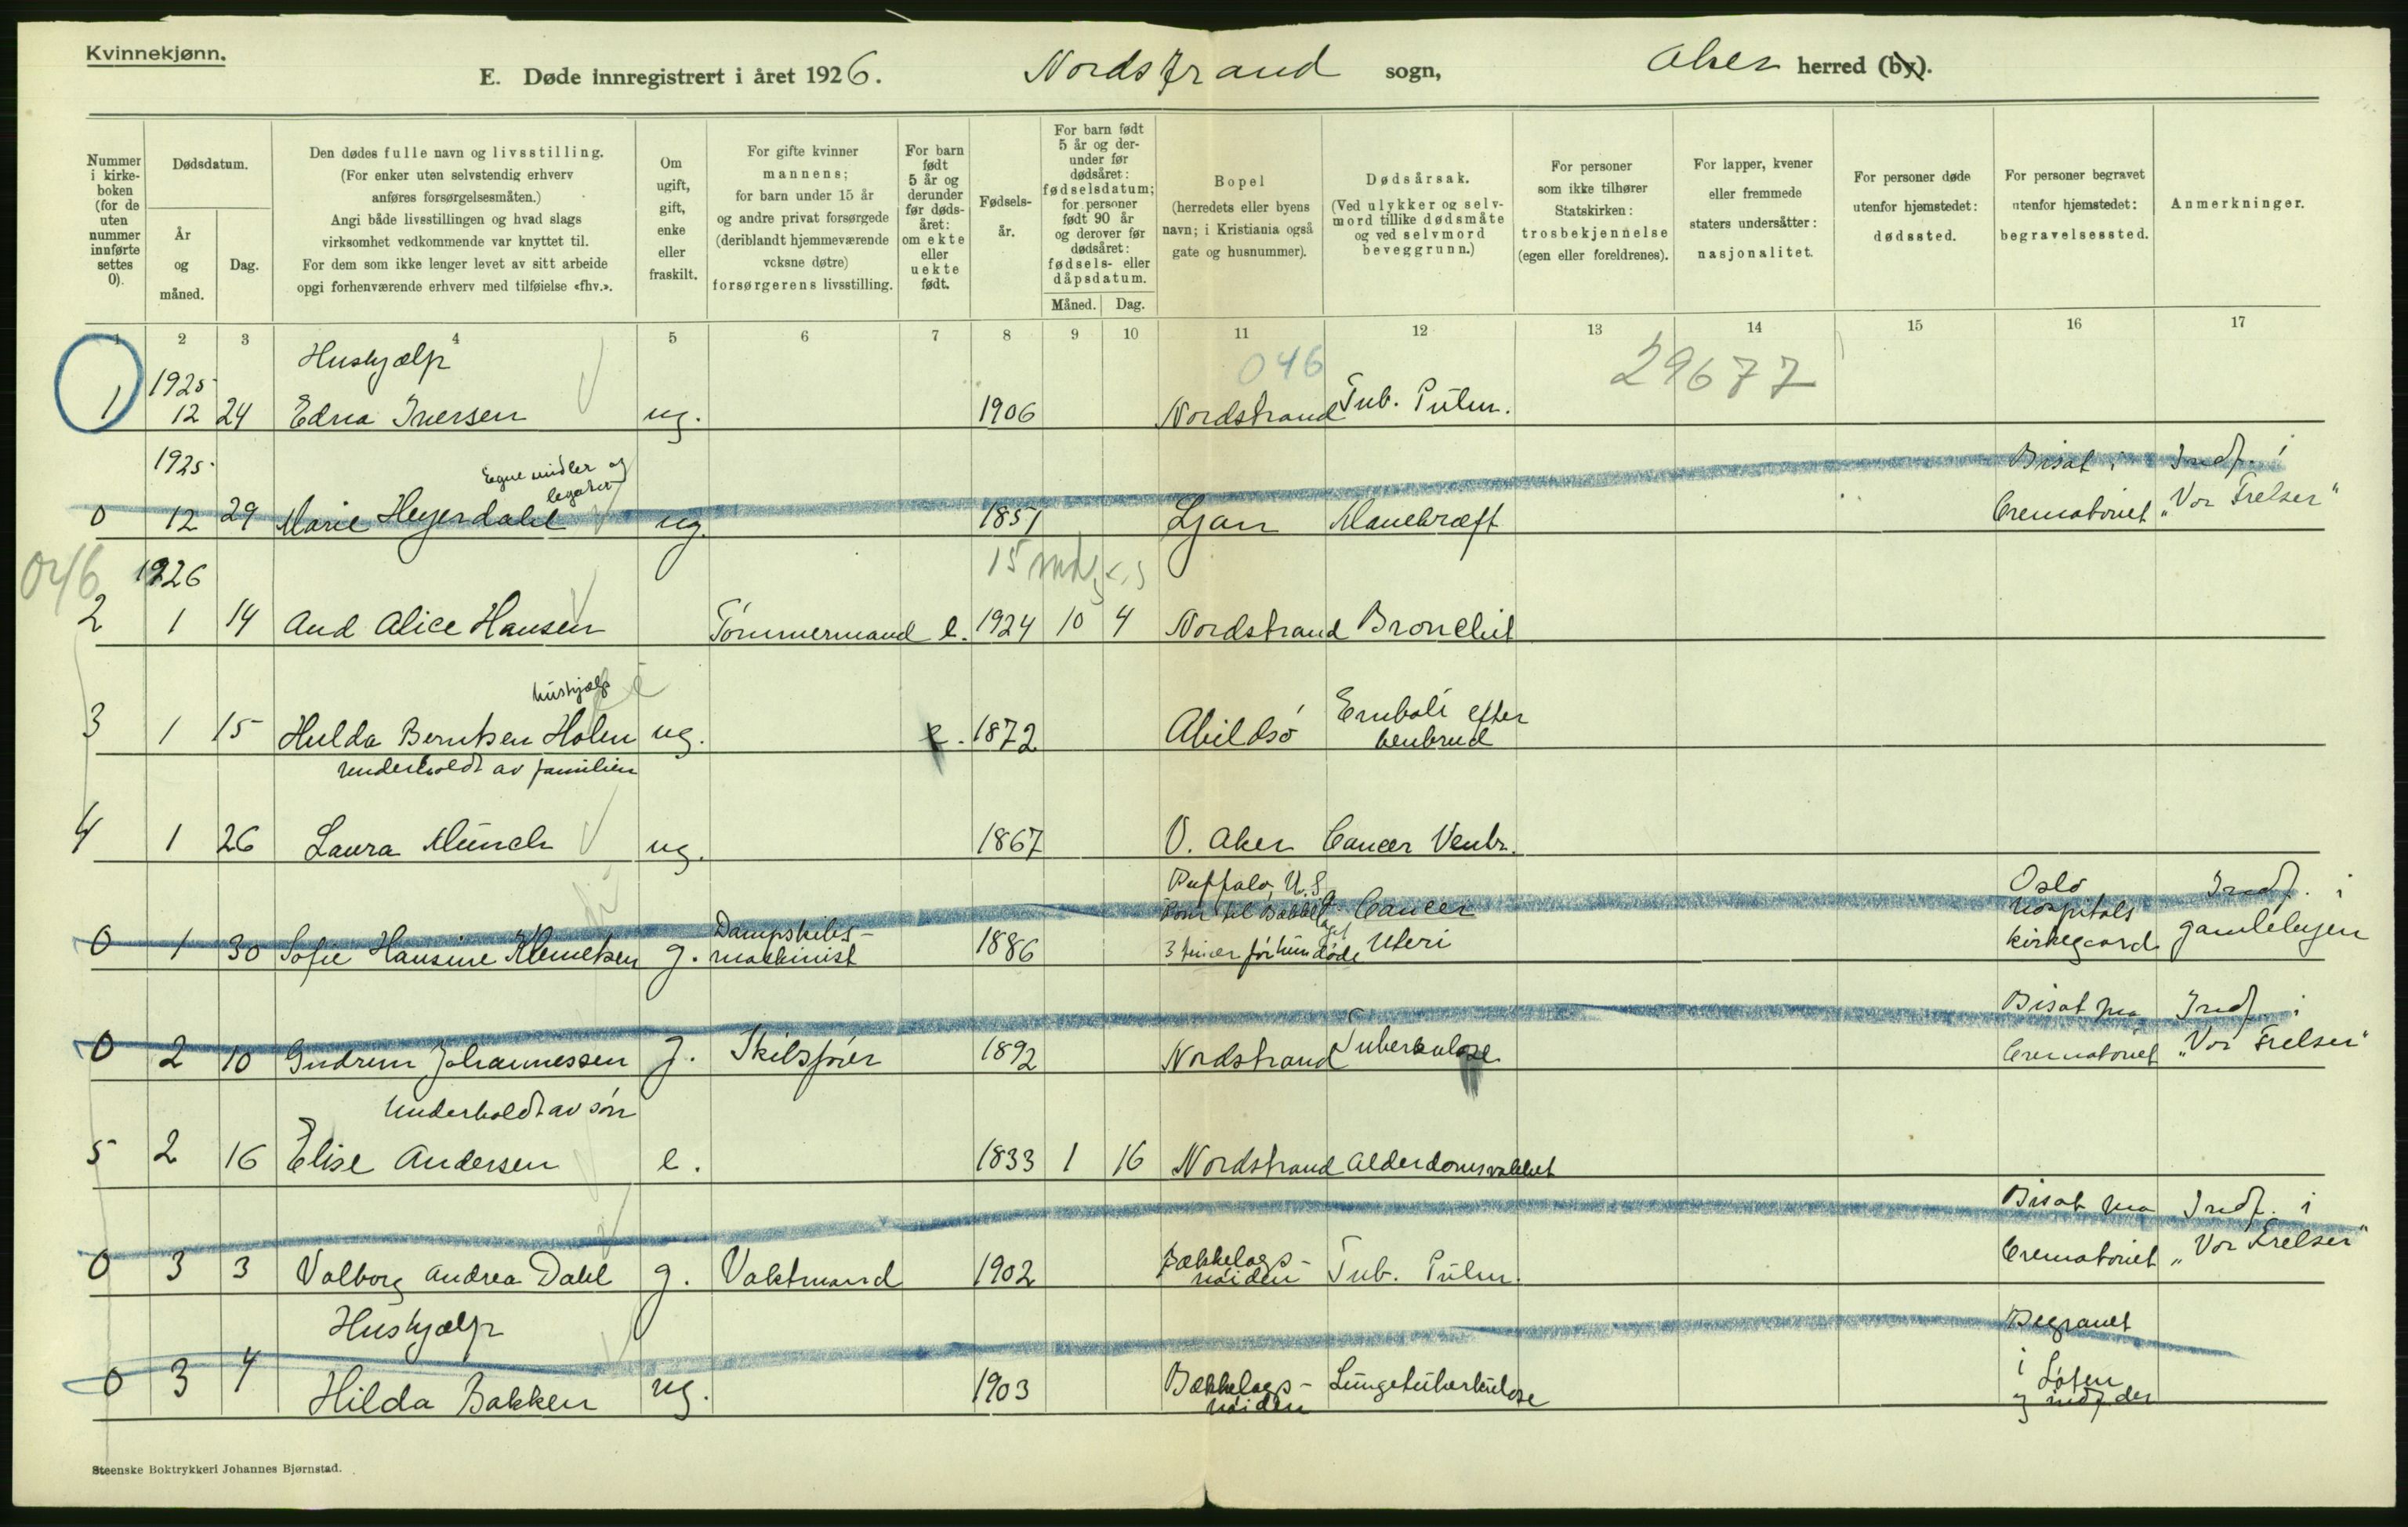 Kvinnekjønn.
E. Døde innregistrert i året 1926. Nordstrand sogn, Aker herred (by).
Nummer i kirkeboken (for de uten nummer innførte settes 0).
Dødsdatum.
År og måned.
Dag.
Den dødes fulle navn og livsstilling.
(For enker uten selvstendig erhverv
anføres forsørgelsesmåten.)
Angi både livsstillingen og hvad slags
virksomhet vedkommende var knyttet til.
For dem som ikke lenger levet av sitt arbeide
opgi forhenværende erhverv med tilføielse «fhv.».
Om
ugift,
gift,
enke
eller
fraskilt.
For gifte kvinner
mannens;
for barn under 15 år
og andre privat forsørgede
(deriblandt hjemmeværende
voksne døtre)
forsørgerens livsstilling.
For barn
født
5 år og
derunder
før døds-
året:
om ekte
eller
uekte
født.
Fødsels-
år.
For barn født
5 år og der-
under før
dødsåret:
fødselsdatum;
for personer
født 90 år
og derover før
dødsåret:
fødsels- eller
dåpsdatum.
Måned. Dag.
Bopel
(herredets eller byens
navn; i Kristiania også
gate og husnummer).
Dødsårsak.
(Ved ulykker og selv-
mord tillike dødsmåte
og ved selvmord
beveggrunn.)
For personer
som ikke tilhører
Statskirken:
trosbekjennelse
(egen eller foreldrenes).
For lapper, kvener
eller fremmede
staters undersåtter:
nasjonalitet.
For personer døde
utenfor hjemstedet:
dødssted.
For personer begravet
utenfor hjemstedet:
begravelsessted.
Anmerkninger.
1 2 3 4 5 6 7 8 9 10 11 12 13 14 15 16 17
Hushjælp 046 29677
1925
1 12 24 Edna Iversen ug. 1906 Nordstrand Tub. Pulm.
1925 Egne midler og legater Bisat i Indf. i
0 12 29 Marie Heyerdahl ug. 1851 Ljan Mavekræft Crematoriet „Vor Frelser"
046 1926 15 md
2 1 14 Aud Alice Hansen Tömmermand e. 1924 10 4 Nordstrand Bronchit
hushjælp
3 1 15 Hulda Berntsen Holen ug. e. 1872 Abildsö Emboli efter benbrud
Underholdt av familien
4 1 26 Laura Münch ug. 1867 Ö. Aker Cancer Ventr.
Buffalo, U.S.A. Oslo Indf. i
Kom til Bækkelaget hospitals
0 1 30 Sofie Hansine Klemetsen g. Dampskibs-maskinist 1886 3 uker för hun döde Cancer Uteri kirkegaard gamlebyen
Bisat paa Indf. i
0 2 10 Gudrun Johannessen g. Skibsförer 1892 Nordstrand Tuberkulose Crematoriet „Vor Frelser"
Underholdt av sön
5 2 16 Elise Andersen e. 1833 1 16 Nordstrand Alderdomsvakhet
Bisat paa Indf. i
0 3 3 Valborg Andrea Dahl g. Vaktmand 1902 Bækkelags-höiden Tub. Pulm. Crematoriet „Vor Frelser"
Hushjælp Begravet
0 3 4 Hilda Bakken ug. 1903 Bækkelags-höiden Lungetuberkulose i Löten
og indf der
Steenske Boktrykkeri Johannes Bjørnstad.